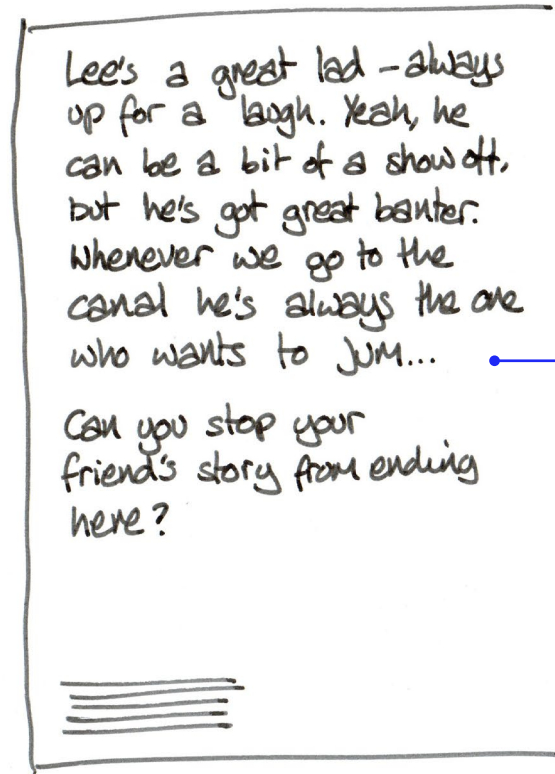 Lee's a great lad – always
up for a laugh. Yeah, he
can be a bit of a show off,
but he's got great banter.
Whenever we go to the
canal he's always the one
who wants to jum...
Can you stop your
friend's story from ending
here?